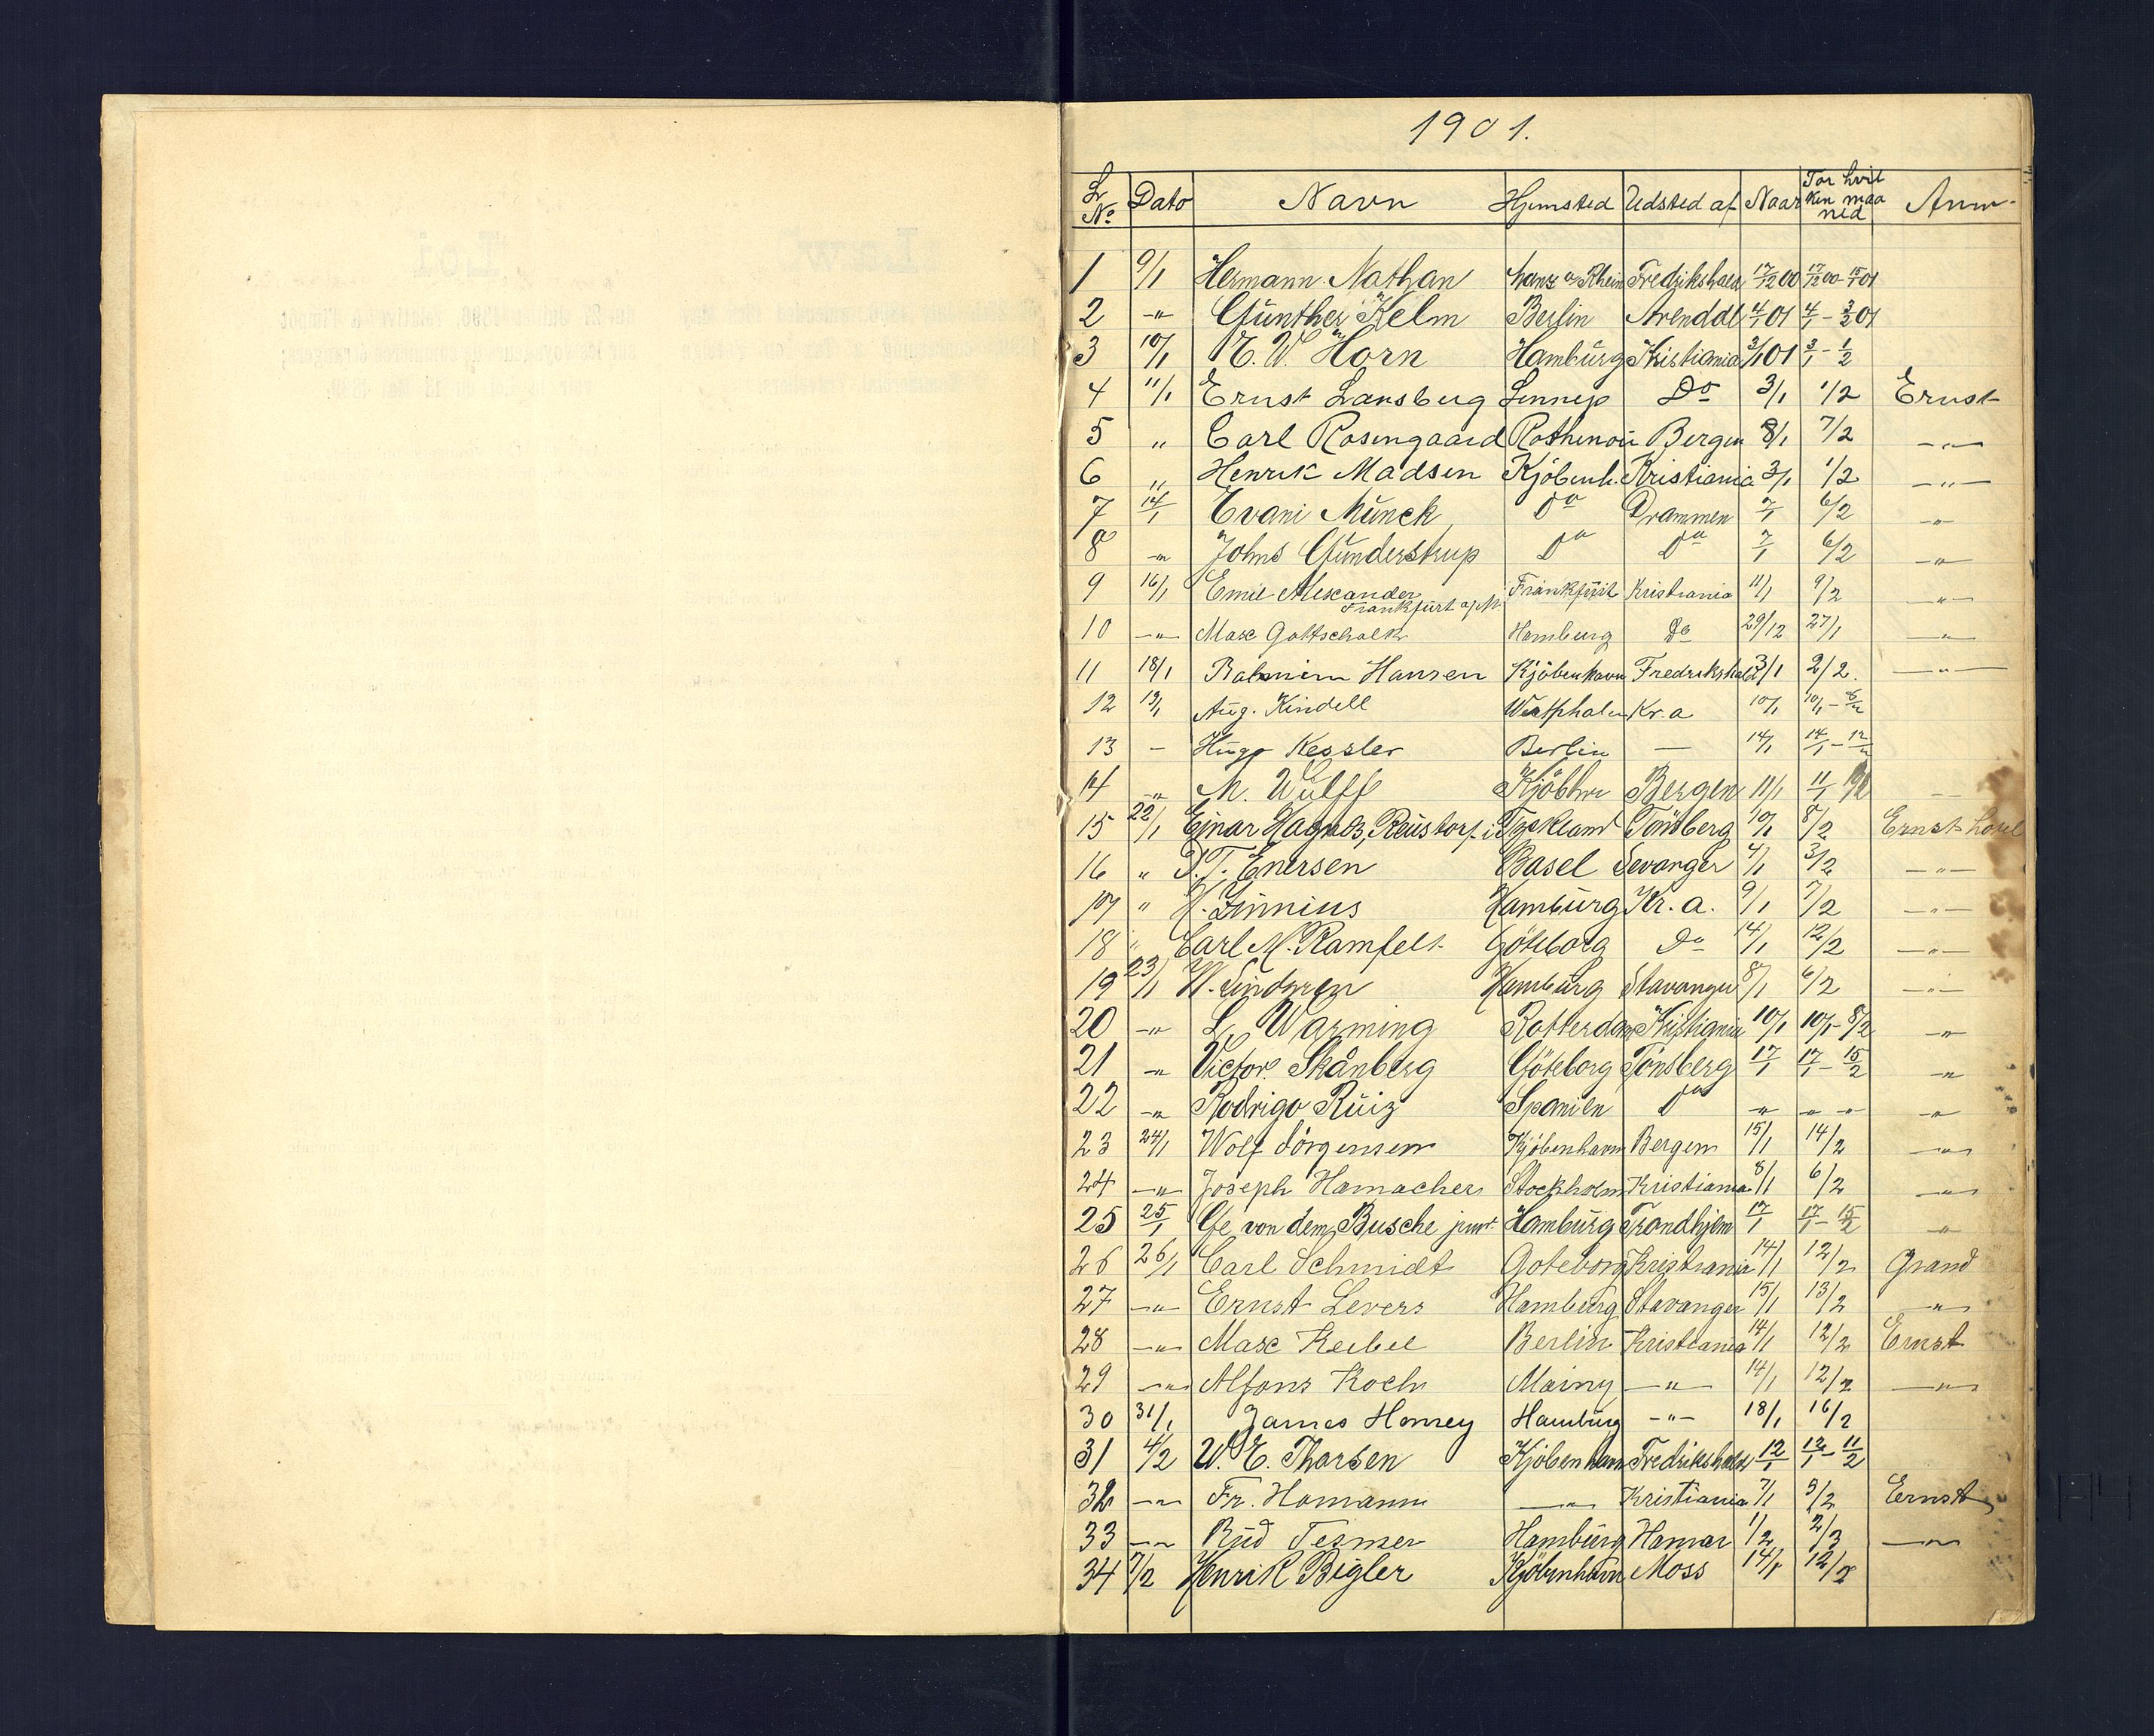 1901.
L No Dato Navn Hjemsted Udsted af Naar For hvilken maaned Anm.
1 9/1 Hermann Nathan Mainz a/Rhein Fredrikshald 17/12 00 17/12 00 - 15/1 01
2 -"- Günther Kelm Berlin Arenddl 4/1 01 4/1 - 3/2 01
3 10/1 E. W. Horn Hamburg Kristiania 3/1 01 3/1 - 1/2
4 11/1 Ernst Lansberg Lennep Do 3/1 1/2 Ernst
5 " Carl Rosengaard Rothenou Bergen 8/1 7/2 -"-
6 " Henrik Madsen Kjöbenh. Kristiania 3/1 1/2 -"-
7 14/1 Evani Munck Do Drammen 7/1 6/2 -"-
8 -"- Johns Gunderstrup Do Do 7/1 6/2 -"-
9 16/1 Emil Alexander Frankfurt a/M. Frankfurt Kristiania 11/1 9/2 -"-
10 -"- Max Gottschalk Hamburg Do 29/12 27/1 -"-
11 18/1 Hansen Kjöbenhavn Fredrikshald 3/1 2/2. -"-
12 19/1 Aug. Kindell Westphalen Kr.a 10/1 10/1 - 8/2
13 - Hugo Kessler Berlin - 14/1 14/1 - 12/2
14 -"- M. Wulff Kjöbhvn Bergen 11/1 11/1
15 22/1 Einar Tyskland Tönsberg 10/1 8/2 Ernst Hotel
16 " P.T. Enersen Basel Levanger 4/1 3/2 -"-
17 " H. Zinnius Hamburg Kr.a. 9/1 7/2 -"-
18 " Carl M. Ramfelt Göteborg Do 14/1 12/2 -"-
19 23/1 W. Lindgren Hamburg Stavanger 8/1 6/2 -"-
20 -"- L. Warming Rotterdam Kristiania 10/1 10/1 - 8/2 -"-
21 -"- Victor Skånberg Göteborg Tönsberg 17/1 17/1 - 15/2 -"-
22 -"- Rodrigo Ruiz Spanien Do -"- -"- -"- -"-
23 24/1 Wolf Jörgensen Kjöbenhavn Bergen 15/1 14/2 -"-
24 -"- Joseph Hamacher Stockholm Kristiania 8/1 6/2 -"-
25 25/1 Ge von dem Busche junr. Hamburg Trondhjem 17/1 17/1 - 15/2 -"-
26 26/1 Carl Schmidt Goteborg Kristiania 14/1 12/2 Grand
27 -"- Ernst Levers Hamburg Stavanger 15/1 13/2 -"-
28 -"- Max Keibel Berlin Kristiania 14/1 12/2 Ernst
29 -"- Alfons Koch Mainz -"- 14/1 12/2 -"-
30 31/1 James Hamburg -"- 18/1 16/2
31 4/2 W. E. Thorsen Kjöbenhavn Fredrikshald 12/1 12/1 - 11/2
32 -"- Fr. Homann -"- Kristiania 7/1 5/2 Ernst
33 -"- Rud Tesmer Hamburg Hamar 1/2 2/3 -"-
34 7/2 Henrik Bigler Kjöbenhavn Moss 14/1 12/2